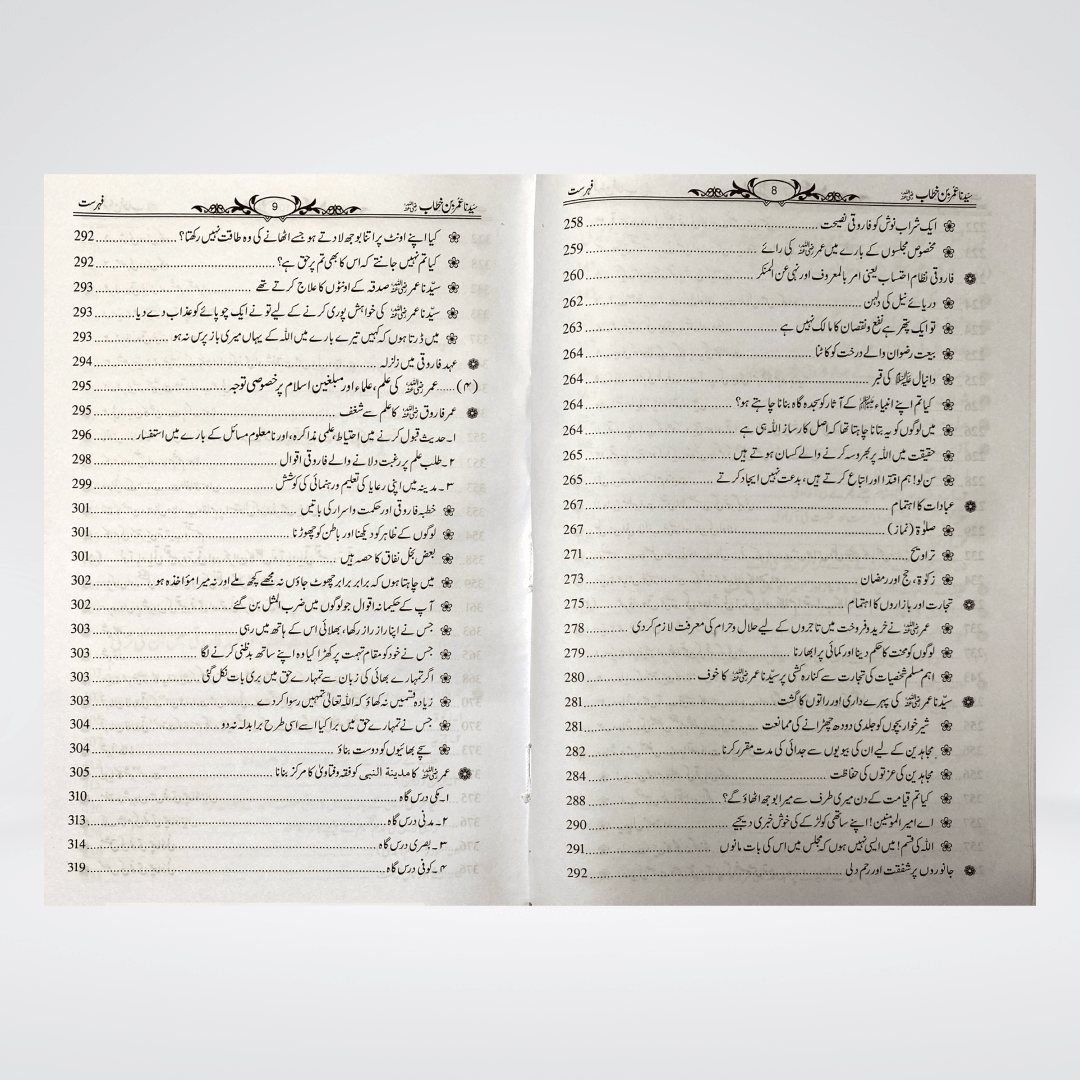 سیدنا عمر بن خطاب رضی اللہ عنہ 8 فہرست
ایک شراب نوش کو فاروقی نصیحت 258
مخصوص مجلسوں کے بارے میں عمر رضی اللہ عنہ کی رائے 259
فاروقی نظام احتساب یعنی امر بالمعروف اور نہی عن المنکر 260
دریائے نیل کی دلہن 262
تو ایک پتھر ہے نفع و نقصان کا مالک نہیں ہے 263
بیعت رضوان والے درخت کو کاٹنا 264
دانیال علیہ السلام کی قبر 264
کیا تم اپنے انبیاء علیہم السلام کے آثار کو سجدہ گاہ بنانا چاہتے ہو؟ 264
میں لوگوں کو یہ بتانا چاہتا تھا کہ اصل کارساز اللہ ہی ہے 264
حقیقت میں اللہ پر بھروسہ کرنے والے کسان ہوتے ہیں 265
سن لو! ہم اقتدا اور اتباع کرتے ہیں، بدعت نہیں ایجاد کرتے 265
عبادات کا اہتمام 267
صلوٰۃ (نماز) 267
تراویح 271
زکوٰۃ، حج اور رمضان 273
تجارت اور بازاروں کا اہتمام 275
عمر رضی اللہ عنہ نے خرید و فروخت میں تاجروں کے لیے حلال و حرام کی معرفت لازم کر دی 278
لوگوں کو محنت کا حکم دینا اور کمائی پر ابھارنا 279
اہم مسلم شخصیات کی تجارت سے کنارہ کشی پر سیدنا عمر رضی اللہ عنہ کا خوف 280
سیدنا عمر رضی اللہ عنہ کی پہرے داری اور راتوں کا گشت 281
شیر خوار بچوں کو جلدی دودھ چھڑانے کی ممانعت 281
مجاہدین کے لیے ان کی بیویوں سے جدائی کی مدت مقرر کرنا 282
مجاہدین کی عزتوں کی حفاظت 284
کیا تم قیامت کے دن میری طرف سے میرا بوجھ اٹھاؤ گے؟ 288
اے امیر المومنین! اپنے ساتھی کو لڑکے کی خوش خبری دیجیے 290
اللہ کی قسم! میں ایسی نہیں ہوں کہ مجلس میں اس کی بات مانوں 291
جانوروں پر شفقت اور رحم دلی 292
سیدنا عمر بن خطاب رضی اللہ عنہ 9 فہرست
کیا اپنے اونٹ پر اتنا بوجھ لادتے ہو جسے اٹھانے کی وہ طاقت نہیں رکھتا؟ 292
کیا تم نہیں جانتے کہ اس کا بھی تم پر حق ہے؟ 292
سیدنا عمر رضی اللہ عنہ صدقہ کے اونٹوں کا علاج کرتے تھے 293
سیدنا عمر رضی اللہ عنہ کی خواہش پوری کرنے کے لیے تو نے ایک چوپائے کو عذاب دے دیا 293
میں ڈرتا ہوں کہ کہیں تیرے بارے میں اللہ کے یہاں میری باز پرس نہ ہو 293
عہد فاروقی میں زلزلہ 294
(۴) عمر رضی اللہ عنہ کی علم، علماء اور مبلغین اسلام پر خصوصی توجہ 295
عمر فاروق رضی اللہ عنہ کا علم سے شغف 295
۱۔ حدیث قبول کرنے میں احتیاط، علمی مذاکرہ، اور نامعلوم مسائل کے بارے میں استفسار 296
۲۔ طلب علم پر رغبت دلانے والے فاروقی اقوال 298
۳۔ مدینہ میں اپنی رعایا کی تعلیم و رہنمائی کی کوشش 299
خطبہ فاروقی اور حکمت و اسرار کی باتیں 301
لوگوں کے ظاہر کو دیکھنا اور باطن کو چھوڑنا 301
بعض بخل نفاق کا حصہ ہیں 301
میں چاہتا ہوں کہ برابر برابر چھوٹ جاؤں نہ مجھے کچھ ملے اور نہ میرا مؤاخذہ ہو 302
آپ کے حکیمانہ اقوال جو لوگوں میں ضرب المثل بن گئے 302
جس نے اپنا راز راز رکھا، بھلائی اس کے ہاتھ میں رہی 303
جس نے خود کو مقام تہمت پر کھڑا کیا وہ اپنے ساتھ بدظنی کرنے لگا 303
اگر تمہارے بھائی کی زبان سے تمہارے حق میں بری بات نکل گئی 303
زیادہ قسمیں نہ کھاؤ کہ اللہ تعالیٰ تمہیں رسوا کر دے 303
جس نے تمہارے حق میں برا کیا اسے اسی طرح برا بدلہ نہ دو 304
سچے بھائیوں کو دوست بناؤ 304
عمر رضی اللہ عنہ کا مدینۃ النبی کو فقہ و فتاویٰ کا مرکز بنانا 305
۱۔ مکی درس گاہ 310
۲۔ مدنی درس گاہ 313
۳۔ بصری درس گاہ 314
۴۔ کوفی درس گاہ 319